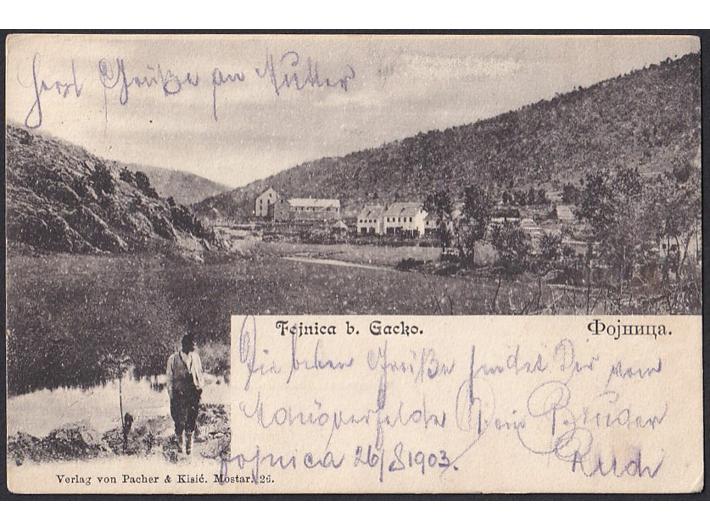 Herzl Grüße an Mutter
Fojnica b. Gacko.
Фојница.
Die besten Grüße sendet Dir vom
Manöverfelde Dein Bruder
Rudi
Fojnica 26/8 1903.
Verlag von Pacher & Kisić. Mostar. 26.